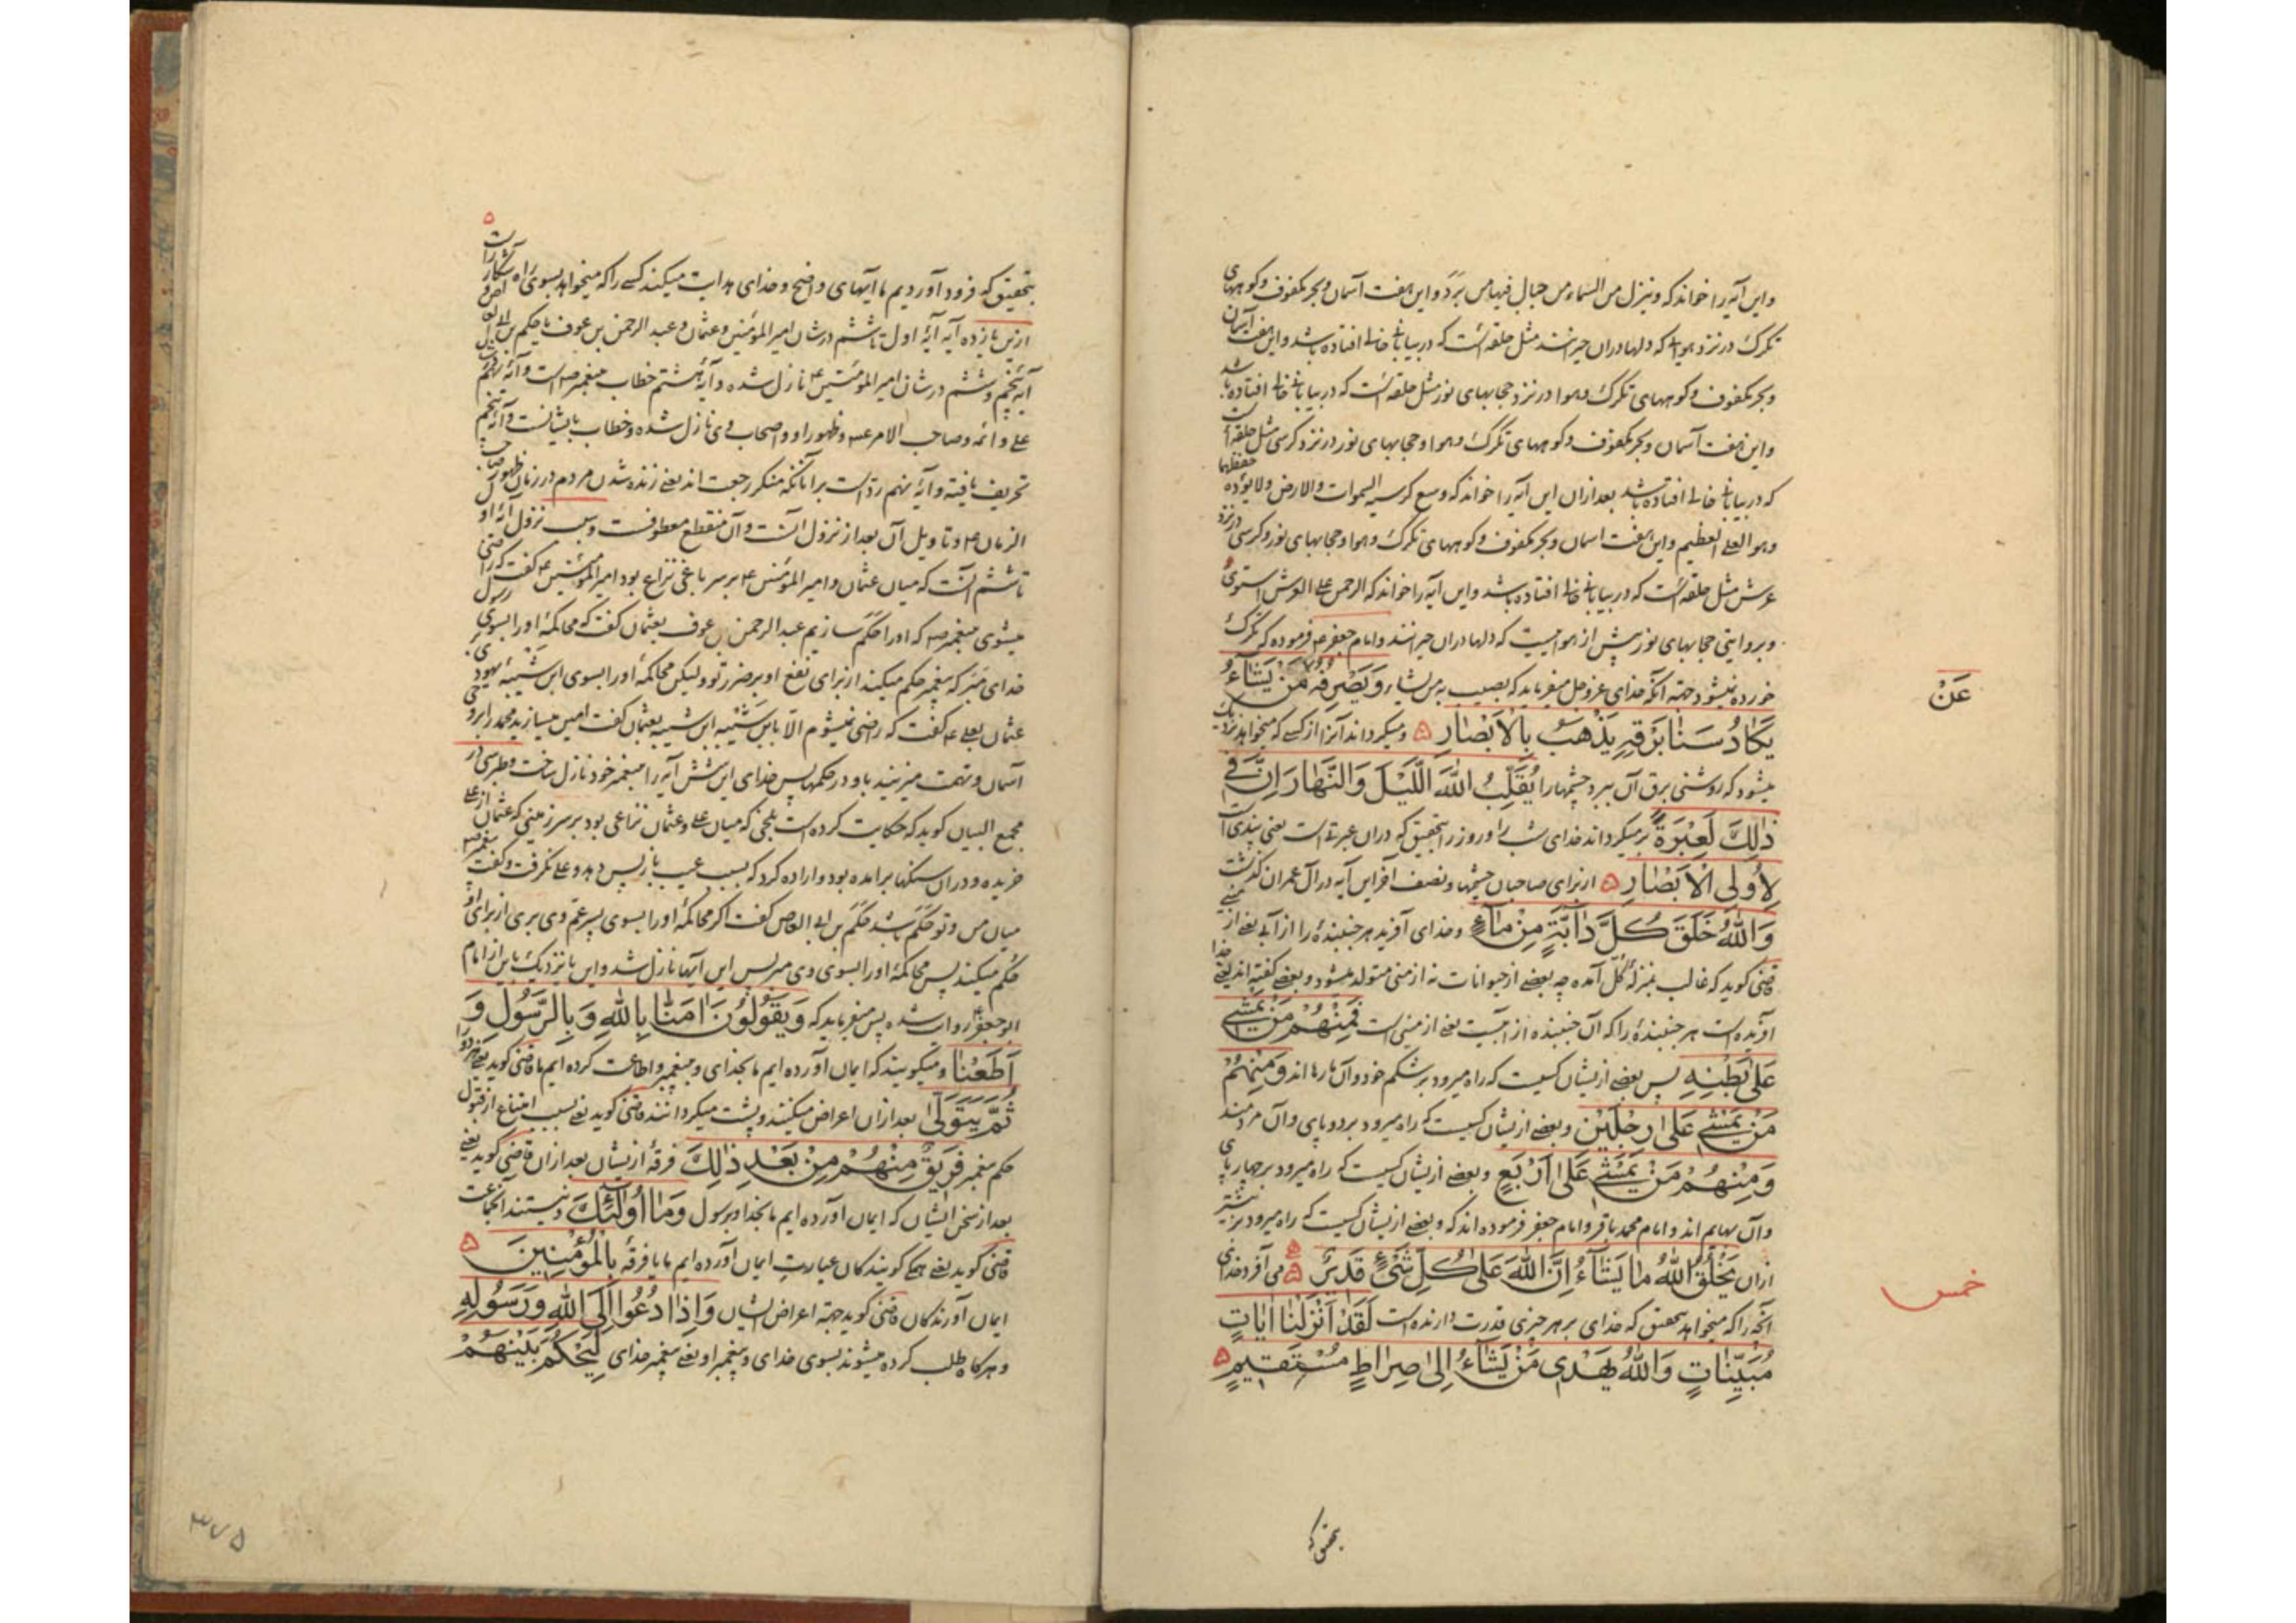 واین آیه را خواند که وینزل من السماء من جبال فیها من برد واین هفت آسمان وبحر مکفوف وکوههای
تکرک در نزد هوایی که دلها در آن حیرانند مثل حلقه است که در بیابانی خالی افتاده باشد واین هفت آسمان
وبحر مکفوف وکوههای تکرک وهوا در نزد حجابهای نور مثل حلقه است که در بیابانی خالی افتاده باشد
واین هفت آسمان وبحر مکفوف وکوههای تکرک وهوا وحجابهای نور در نزد کرسی مثل حلقه است
که در بیابانی خالی افتاده باشد بعد از آن این آیه را خواند که وسع کرسیه السموات والارض ولا یؤده حفظهما
وهو العلی العظیم واین هفت اسمان وبحر مکفوف وکوههای تکرک وهوا وحجابهای نور وکرسی در نزد
عرش مثل حلقه است که در بیابانی خالی افتاده باشد واین آیه را خواند که الرحمن علی العرش استوی
وبروایتی حجابهای نور پیش از هواییست که دلها در آن حیرانند وامام جعفر ع فرموده که تکرک
خورده نمیشود جهة آنکه خدای عزوجل میفرماید که یصیب به من یشاء وَيَصْرِفُهُ مَنْ يَشَآءُ
عَنْ
يَكَادُ سَنَا بَرْقِهِ يَذْهَبُ بِالْاَبْصَارِ ۵ ومیکرداند آنرا از کسی که میخواهد نزدیک
میشود که روشنی برق آن ببرد چشمها را يُقَلِّبُ اللهُ اللَّيْلَ وَالنَّهَارَ اِنَّ فِي
ذٰلِكَ لَعِبْرَةً برمیکرداند خدای شب را وروز را بتحقیق که در آن عبرتی است یعنی پندی است
لِاُولِي الْاَبْصَارِ ۵ از برای صاحبان چشمها ونصف آخر این آیه در آل عمران کذشت
وَاللهُ خَلَقَ كُلَّ دَآبَّةٍ مِنْ مَآءٍ وخدای آفرید هر جنبنده را از آبی یعنی از منی
قاضی کوید که غالب بمنزله کل آمده چه بعضی از حیوانات نه از منی متولد میشود وبعضی کفته اند یعنی خدا
آفریده است هر جنبنده را که آن جنبنده از آبست یعنی از منی است فَمِنْهُمْ مَنْ يَمْشِي
عَلٰى بَطْنِهِ پس بعضی از یشان کسیست که راه میرود بر شکم خود وآن مارها اند وَمِنْهُمْ
مَنْ يَمْشِي عَلٰى رِجْلَيْنِ وبعضی از یشان کسیست که راه میرود بر دو پای وآن مردمند
وَمِنْهُمْ مَنْ يَمْشِي عَلٰى اَرْبَعٍ وبعضی از یشان کسیست که راه میرود بر چهار پای
وآن بهایم اند وامام محمد باقر وامام جعفر فرموده اند که وبعضی از یشان کسیست که راه میرود بر بیشتر
از آن يَخْلُقُ اللهُ مَا يَشَآءُ اِنَّ اللهَ عَلٰى كُلِّ شَيْءٍ قَدِيرٌ ۵ می آفرد خدای
خمس
آنچه را که میخواهد بتحقیق که خدای بر هر چیزی قدرت دارنده است لَقَدْ اَنْزَلْنَا اٰيَاتٍ
مُبَيِّنَاتٍ وَاللهُ يَهْدِي مَنْ يَشَآءُ اِلٰى صِرَاطٍ مُسْتَقِيمٍ ۵
بتحقیق که
بتحقیق که فرود آوردیم ما آیتهای واضح وخدای هدایت میکند کسی را که میخواهد بسوی راه راست
ازین یازده آیه آیۀ اول تا ششم در شان امیر المؤمنین وعثمان وعبد الرحمن بن عوف یا حکم بن ابی العاص
آیه پنجم وششم در شان امیر المؤمنین ع نازل شده وآیۀ هشتم خطاب پیغمبر ص است وآیۀ نهم
علی وائمه وصاحب الامر ع وظهور او واصحاب وی نازل شده وخطاب بایشانست وآیۀ پنجم
تحریف یافته وآیۀ نهم رد است بر آنانکه منکر رجعت اند یعنی زنده شدن مردم در زمان ظهور صاحب
الزمان ع وتاویل آن بعد از نزول آنست وآن منقطع معطوفست وسبب نزول آیۀ اول
تا ششم آنست که میان عثمان وامیر المؤمنین ع بر سر باغی نزاع بود امیر المؤمنین ع کفت که راضی
میشوی پیغمبر ص که او را حکم سازیم عبد الرحمن بن عوف بعثمان کفت که محاکمۀ او را بسوی رسول
خدای مبر که پیغمبر حکم میکند از برای نفع او بر ضرر تو ولیکن محاکمۀ او را بسوی ابن شیبۀ یهود
عثمان بعلی ع کفت که راضی نمیشوم الّا بابن شَیْبه ابن شیبه بعثمان کفت امین میسازید محمد را بر وحی
آسمان وتهمت میزنید باو در حکمها پس خدای این شش آیه را بپیغمبر خود نازل ساخت وطبرسی در
مجمع البیان کوید که حکایت کرده است بلخی که میان علی وعثمان نزاعی بود بر سر زمینی که عثمان از علی
خریده ودر آن سنکها برامده بود واراده کرد که بسبب عیب باز پس دهد وعلی نکرفت وکفت پیغمبر ص
میان من وتو حَکَم باشد حَکَم بن ابی العاص کفت اکر محاکمۀ او را بسوی پسر عمّ وی بری از برای او
حُکم میکند پس محاکمۀ او را بسوی وی مبر پس این آیها نازل شد واین یا نزدیک باین از امام
ابو جعفر روایت شده پس میفرماید که وَيَقُولُونَ اٰمَنَّا بِاللهِ وَبِالرَّسُولِ وَ
اَطَعْنَا ومیکویند که ایمان آورده ایم ما بخدای وپیغمبر واطاعت کرده ایم ما قاضی کوید یعنی هر دو را
ثُمَّ يَتَوَلّٰى بعد از آن اعراض میکنند وپشت میکردانند قاضی کوید یعنی بسبب امتناع از قبول
حکم پیغمبر فَرِيقٌ مِنْهُمْ مِنْ بَعْدِ ذٰلِكَ فرقۀ از یشان بعد از آن قاضی کوید یعنی
بعد از سخن ایشان که ایمان آورده ایم ما بخدا وبرسول وَمَا اُولٰٓئِكَ ونیستند آنجماعت
قاضی کوید یعنی همکی کویندکان عبارت ایمان آورده ایم ما یا فرقۀ بِالْمُؤْمِنِينَ ۵
ایمان آورندکان قاضی کوید جهة اعراض ایشان وَاِذَا دُعُوا اِلَى اللهِ وَرَسُولِهِ
وهرکاه طلب کرده میشوند بسوی خدای وپیغمبر او یعنی پیغمبر خدای لِيَحْكُمَ بَيْنَهُمْ
۳۷۵